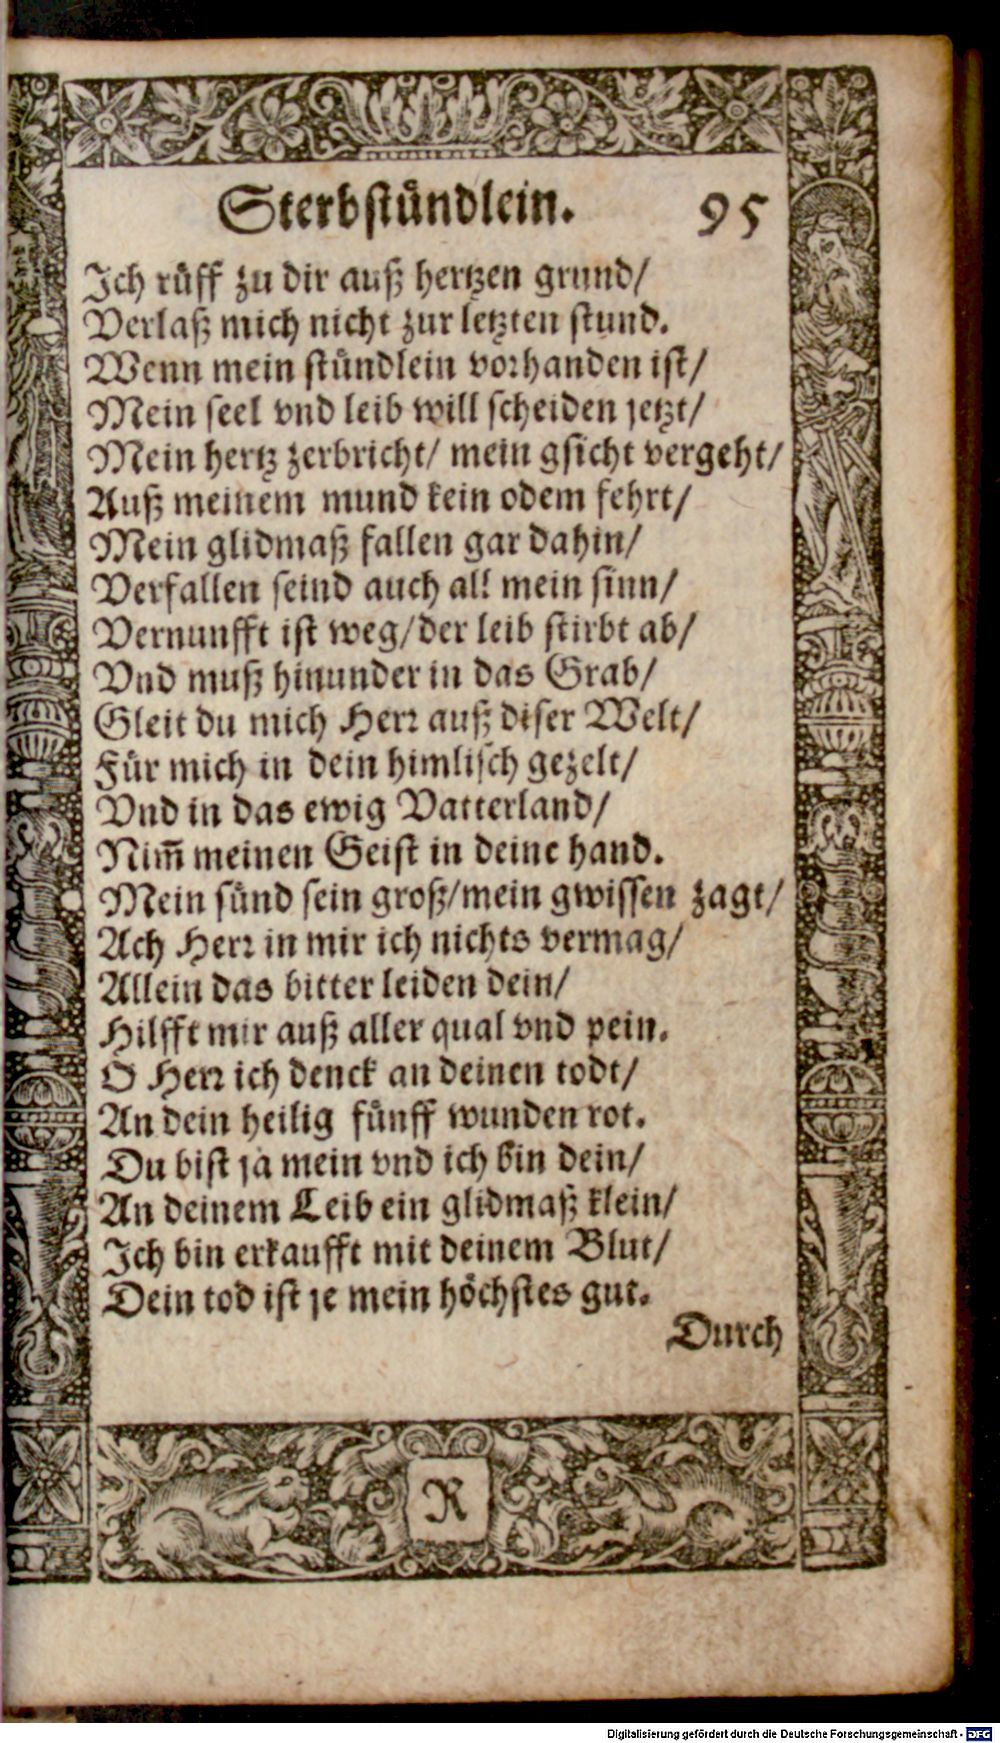 Sterbstündlein. 95
Ich rüff zu dir auß hertzen grund/
Verlaß mich nicht zur letzten stund.
Wenn mein stündlein vorhanden ist/
Mein seel vnd leib will scheiden jetzt/
Mein hertz zerbricht/ mein gsicht vergeht/
Auß meinem mund kein odem fehrt/
Mein glidmaß fallen gar dahin/
Verfallen seind auch all mein sinn/
Vernunfft ist weg/der leib stirbt ab/
Vnd muß hinunder in das Grab/
Gleit du mich Herr auß diser Welt/
Für mich in dein himlisch gezelt/
Vnd in das ewig Vatterland/
Nim̃ meinen Geist in deine hand.
Mein sünd sein groß/mein gwissen zagt/
Ach Herr in mir ich nichts vermag/
Allein das bitter leiden dein/
Hilfft mir auß aller qual vnd pein.
O Herr ich denck an deinen todt/
An dein heilig fünff wunden rot.
Du bist ja mein vnd ich bin dein/
An deinem Leib ein glidmaß klein/
Ich bin erkaufft mit deinem Blut/
Dein tod ist je mein höchstes gut.
Durch
R
Digitalisierung gefördert durch die Deutsche Forschungsgemeinschaft - DFG